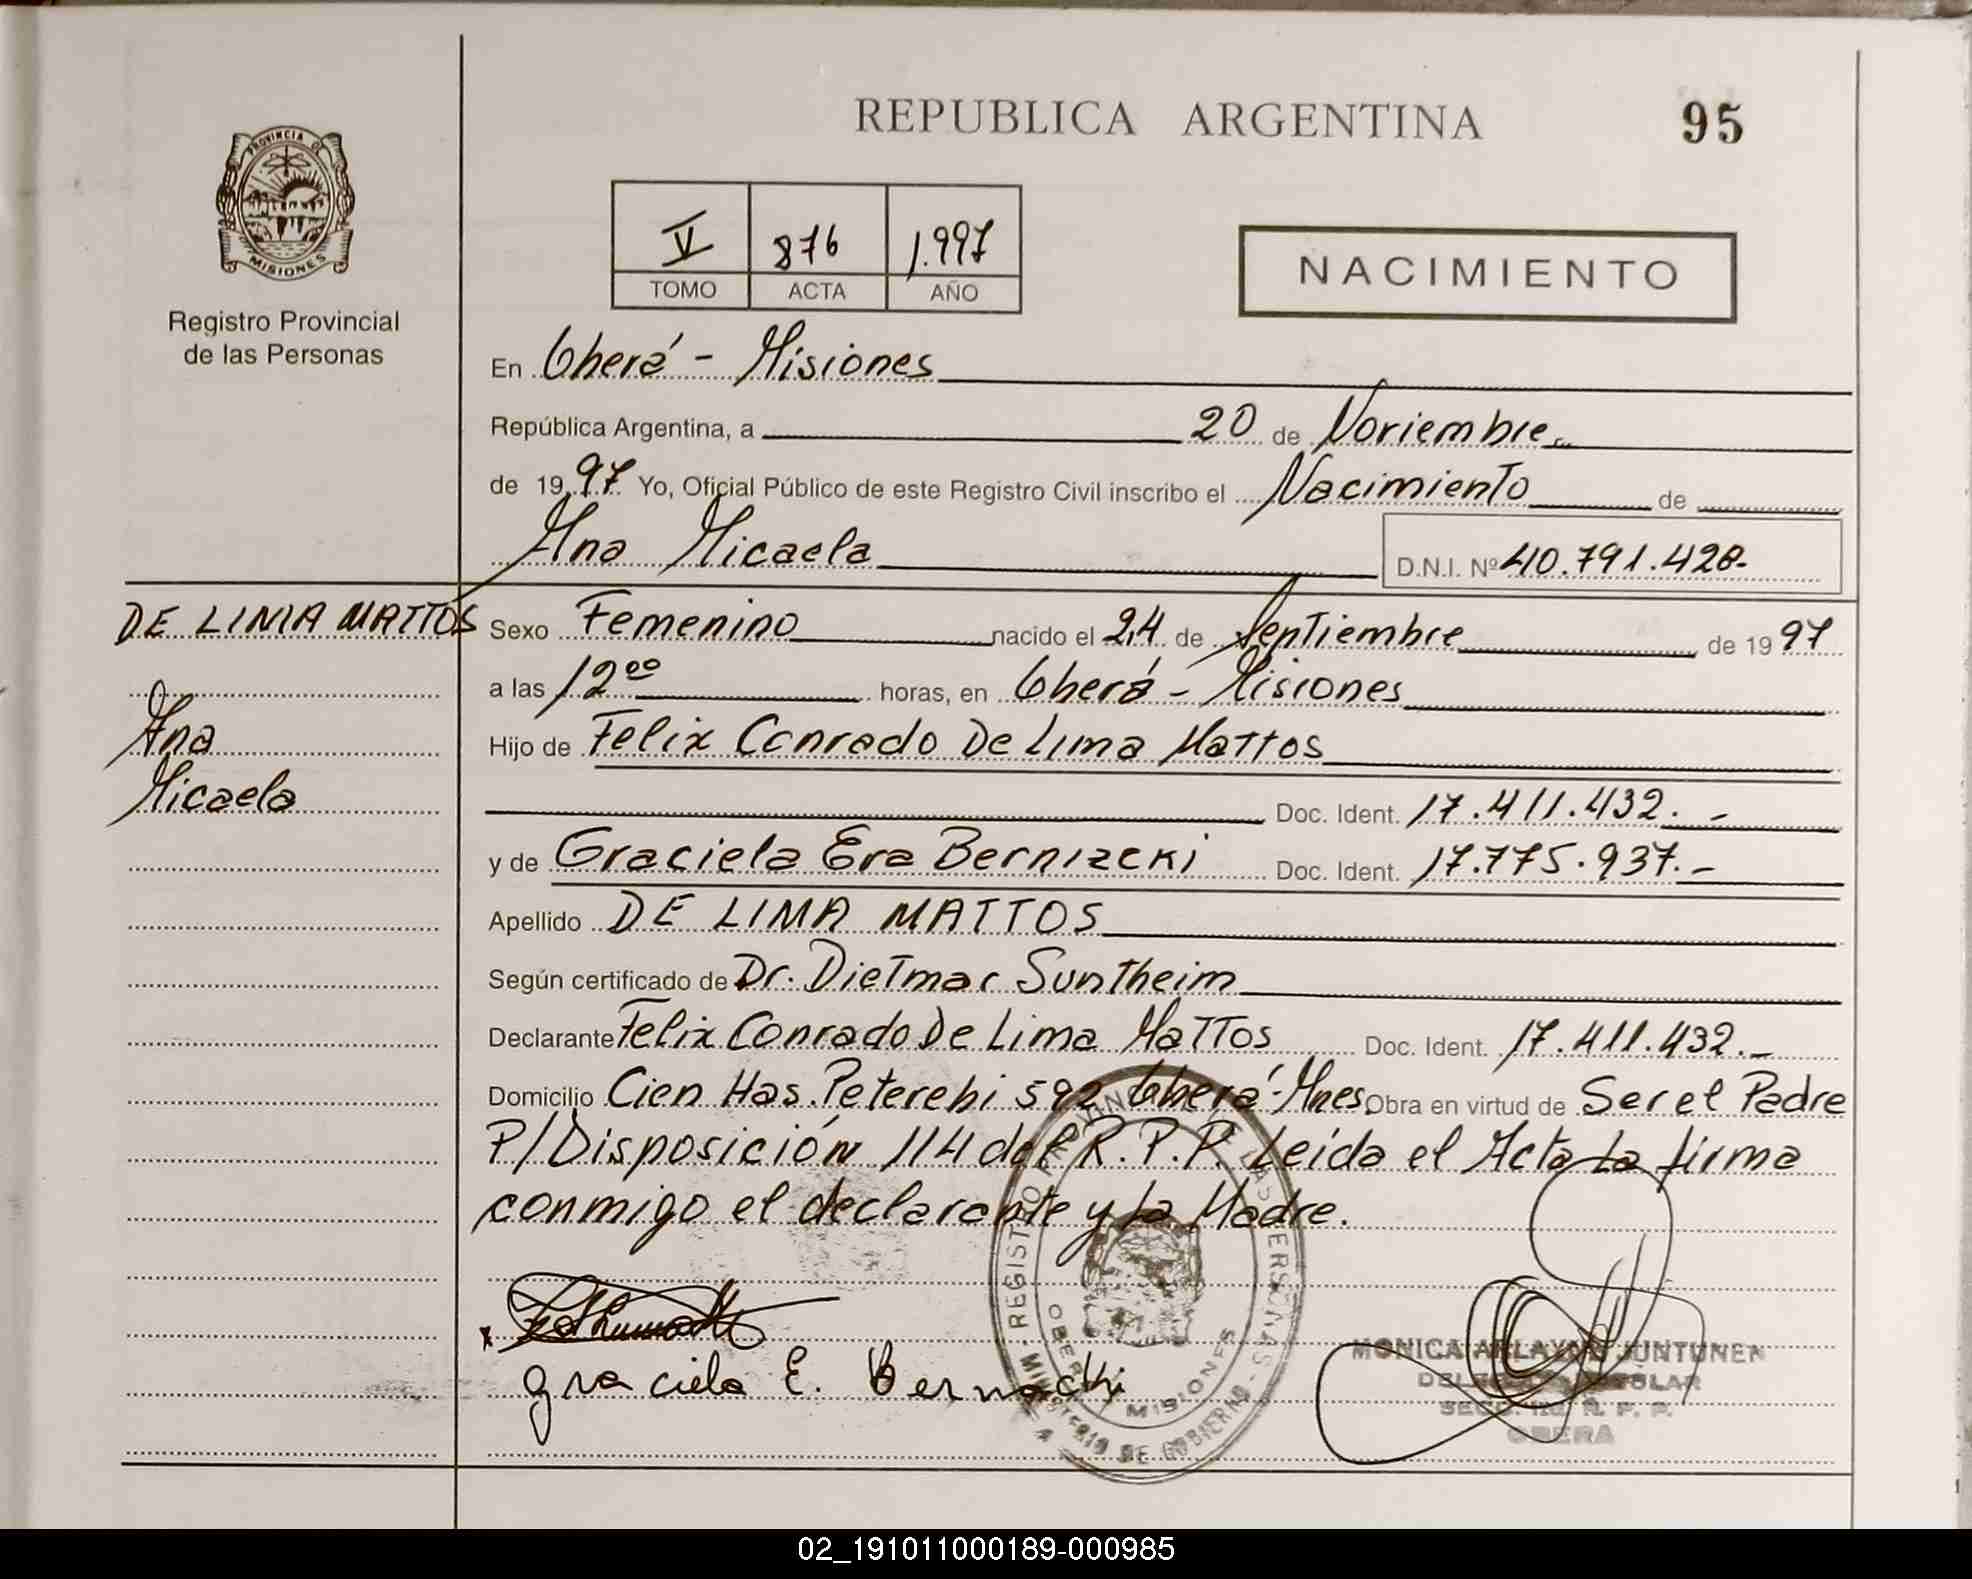 REPUBLICA ARGENTINA
95
PROVINCIA DE
MISIONES
Registro Provincial
de las Personas
V 876 1.997
TOMO ACTA AÑO
NACIMIENTO
En Oberá - Misiones
República Argentina, a 20 de Noviembre
de 1997 Yo, Oficial Público de este Registro Civil inscribo el Nacimiento de
Ana Micaela
D.N.I. Nº 40.791.428-
DE LIMA MATTOS
Ana
Micaela
Sexo Femenino nacido el 24 de Septiembre de 1997
a las 12 00 horas, en Oberá - Misiones
Hijo de Felix Conrado De Lima Mattos
Doc. Ident. 17.411.432.-
y de Graciela Eva Bernizcki Doc. Ident. 17.775.937.-
Apellido DE LIMA MATTOS
Según certificado de Dr. Dietmar Suntheim
Declarante Felix Conrado De Lima Mattos Doc. Ident. 17.411.432.-
Domicilio Cien Has. Peterebi 592 Oberá - Mnes Obra en virtud de Ser el Padre
P/Disposición 114 del R.P.P. Leida el Acta la firma
conmigo el declarante y la Madre.
x
Graciela E.
REGISTRO PROVINCIAL DE LAS PERSONAS - MINISTERIO DE GOBIERNO -
OBERA
MISIONES
MONICA JUNTUNEN
R. P. P.
OBERA
02_191011000189-000985